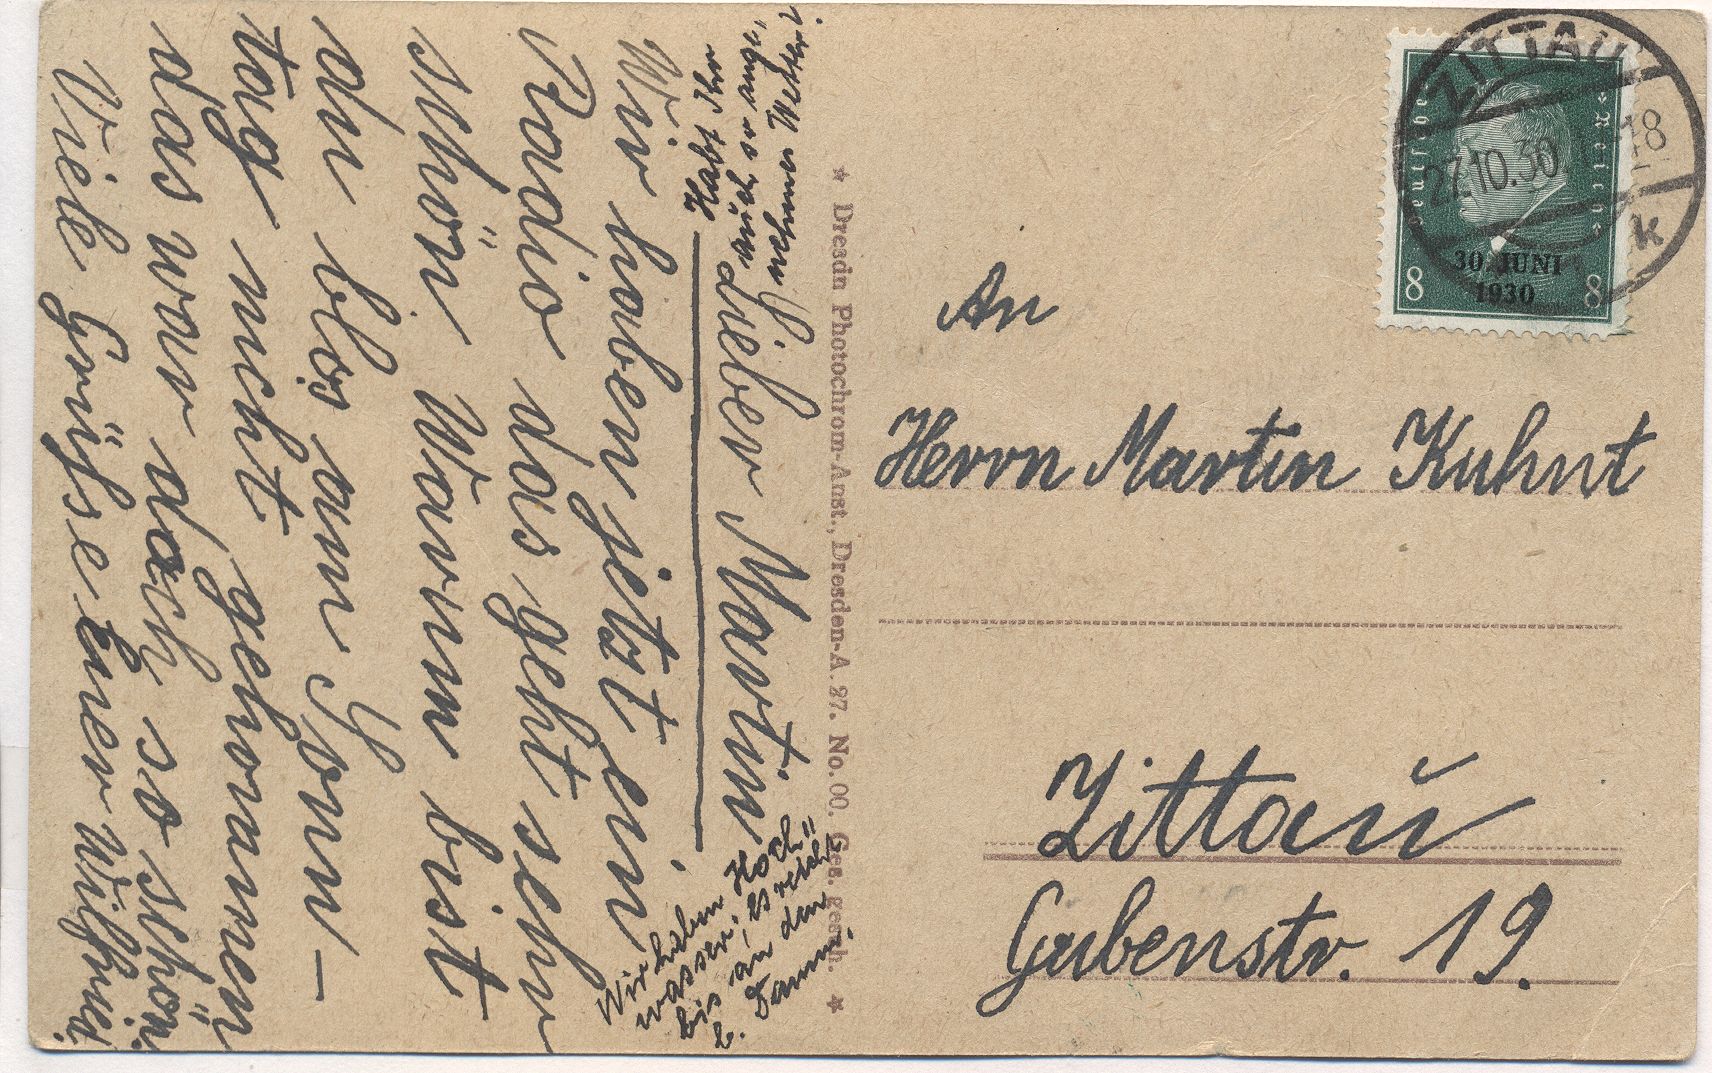 Lieber Martin
Wir haben jetzt ein
Radio das geht sehr
schön. Warum bist
du blos am Sonn-
tag nicht gekommen
das war doch so schön.
Viele Grüsse Euer Wilfried.
Habt Ihr
auch so ange-
nehmes Wetter?
Wir haben Hoch-
wasser, es reicht
bis an den
b. Damm.
★ Dresdn Photochrom-Anst., Dresden-A. 27. No. 00. Ges. gesch. ★
Deutsches Reich
ZITTAU
27.10.30
18
k
30. JUNI
1930
8 8
An
Herrn Martin Kuhnt
Zittau
Gabenstr. 19.